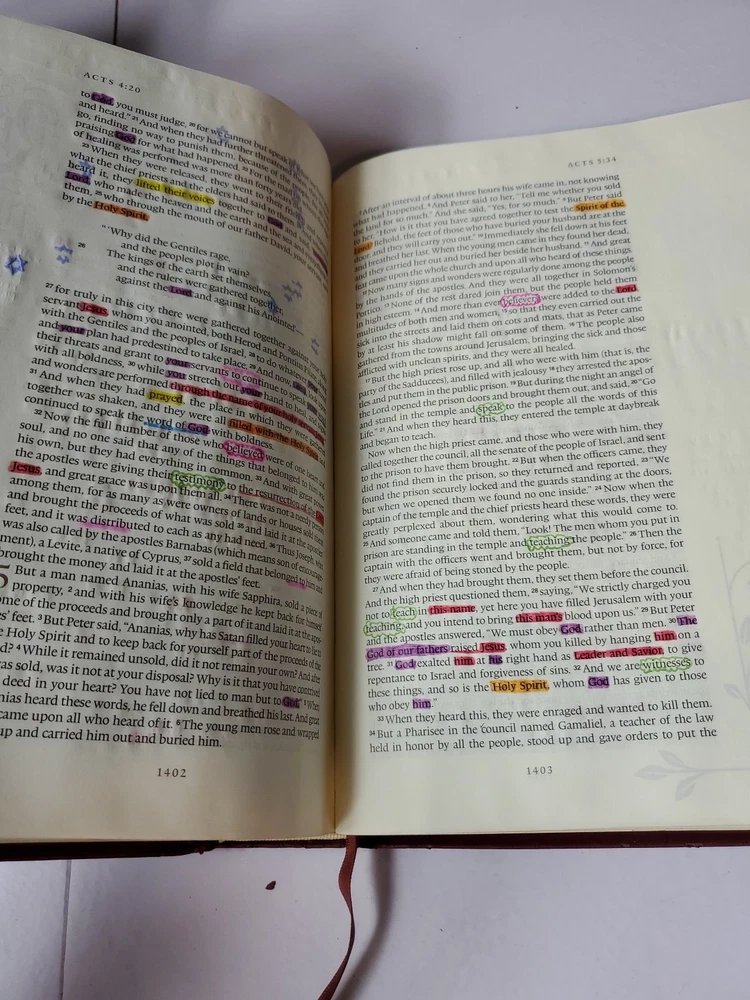 ACTS 4:20
to God, you must judge, 20 for we cannot but speak
and heard." 21 And when they had further threatened
go, finding no way to punish them, because of the
praising God for what had happened. 22 For the
of healing was performed was more than forty
23 When they were released, they went to their
what the chief priests and the elders had said
heard it, they lifted their voices together to God and
Lord, who made the heaven and the earth and the sea
them, 25 who through the mouth of our father David,
by the Holy Spirit,
"'Why did the Gentiles rage,
and the peoples plot in vain?
26 The kings of the earth set themselves,
and the rulers were gathered together,
against the Lord and against his Anointed'—
27 for truly in this city there were gathered together against
servant Jesus, whom you anointed, both Herod and Pontius
with the Gentiles and the peoples of Israel, 28 to do whatever
and your plan had predestined to take place. 29 And now,
their threats and grant to your servants to continue to speak
with all boldness, 30 while you stretch out your hand to heal,
and wonders are performed through the name of your holy servant
31 And when they had prayed, the place in which they were gathered
together was shaken, and they were all filled with the Holy Spirit
continued to speak the word of God with boldness.
32 Now the full number of those who believed were of one heart
soul, and no one said that any of the things that belonged to him
his own, but they had everything in common. 33 And with great
the apostles were giving their testimony to the resurrection of the
Jesus, and great grace was upon them all. 34 There was not a needy
among them, for as many as were owners of lands or houses sold them
and brought the proceeds of what was sold 35 and laid it at the apostles'
feet, and it was distributed to each as any had need. 36 Thus Joseph,
was also called by the apostles Barnabas (which means son of encourage-
ment), a Levite, a native of Cyprus, 37 sold a field that belonged to him and
brought the money and laid it at the apostles' feet.
5 But a man named Ananias, with his wife Sapphira, sold a piece of
property, 2 and with his wife's knowledge he kept back for himself
some of the proceeds and brought only a part of it and laid it at the apos-
tles' feet. 3 But Peter said, "Ananias, why has Satan filled your heart to lie to
the Holy Spirit and to keep back for yourself part of the proceeds of the
land? 4 While it remained unsold, did it not remain your own? And after
it was sold, was it not at your disposal? Why is it that you have contrived
deed in your heart? You have not lied to man but to God." 5 When
Ananias heard these words, he fell down and breathed his last. And great
came upon all who heard of it. 6 The young men rose and wrapped
up and carried him out and buried him.
1402
ACTS 5:34
7 After an interval of about three hours his wife came in, not knowing
what had happened. 8 And Peter said to her, "Tell me whether you sold
the land for so much." And she said, "Yes, for so much." 9 But Peter said
to her, "How is it that you have agreed together to test the Spirit of the
Lord? Behold, the feet of those who have buried your husband are at the
door, and they will carry you out." 10 Immediately she fell down at his feet
and breathed her last. When the young men came in they found her dead,
and they carried her out and buried her beside her husband. 11 And great
fear came upon the whole church and upon all who heard of these things.
12 Now many signs and wonders were regularly done among the people
by the hands of the apostles. And they were all together in Solomon's
Portico. 13 None of the rest dared join them, but the people held them
in high esteem. 14 And more than ever believers were added to the Lord,
multitudes of both men and women, 15 so that they even carried out the
sick into the streets and laid them on cots and mats, that as Peter came
by at least his shadow might fall on some of them. 16 The people also
gathered from the towns around Jerusalem, bringing the sick and those
afflicted with unclean spirits, and they were all healed.
17 But the high priest rose up, and all who were with him (that is, the
party of the Sadducees), and filled with jealousy 18 they arrested the apos-
tles and put them in the public prison. 19 But during the night an angel of
the Lord opened the prison doors and brought them out, and said, 20 "Go
and stand in the temple and speak to the people all the words of this
Life." 21 And when they heard this, they entered the temple at daybreak
and began to teach.
Now when the high priest came, and those who were with him, they
called together the council, all the senate of the people of Israel, and sent
to the prison to have them brought. 22 But when the officers came, they
did not find them in the prison, so they returned and reported, 23 "We
found the prison securely locked and the guards standing at the doors,
but when we opened them we found no one inside." 24 Now when the
captain of the temple and the chief priests heard these words, they were
greatly perplexed about them, wondering what this would come to.
25 And someone came and told them, "Look! The men whom you put in
prison are standing in the temple and teaching the people." 26 Then the
captain with the officers went and brought them, but not by force, for
they were afraid of being stoned by the people.
27 And when they had brought them, they set them before the council.
And the high priest questioned them, 28 saying, "We strictly charged you
not to teach in this name, yet here you have filled Jerusalem with your
teaching, and you intend to bring this man's blood upon us." 29 But Peter
and the apostles answered, "We must obey God rather than men. 30 The
God of our fathers raised Jesus, whom you killed by hanging him on a
tree. 31 God exalted him at his right hand as Leader and Savior, to give
repentance to Israel and forgiveness of sins. 32 And we are witnesses to
these things, and so is the Holy Spirit, whom God has given to those
who obey him."
33 When they heard this, they were enraged and wanted to kill them.
34 But a Pharisee in the council named Gamaliel, a teacher of the law
held in honor by all the people, stood up and gave orders to put the
1403